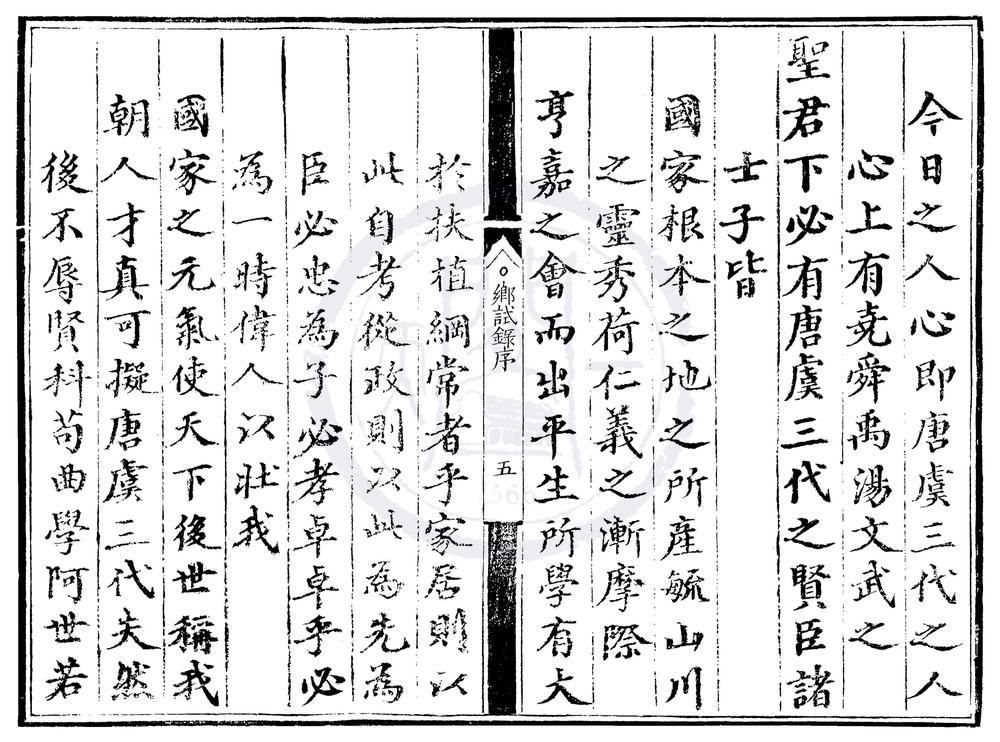 今日之人心即唐虞三代之人
心上有堯舜禹湯文武之
聖君下必有唐虞三代之賢臣諸
士子皆
國家根本之地之所產毓山川
之靈秀荷仁義之漸摩際
亨嘉之會而出平生所學有大
鄉試錄序
五
於扶植綱常者乎家居則以
此自考從政則以此為先為
臣必忠為子必孝卓卓乎必
為一時偉人以壯我
國家之元氣使天下後世稱我
朝人才真可擬唐虞三代夫然
後不辱賢科苟曲學阿世若